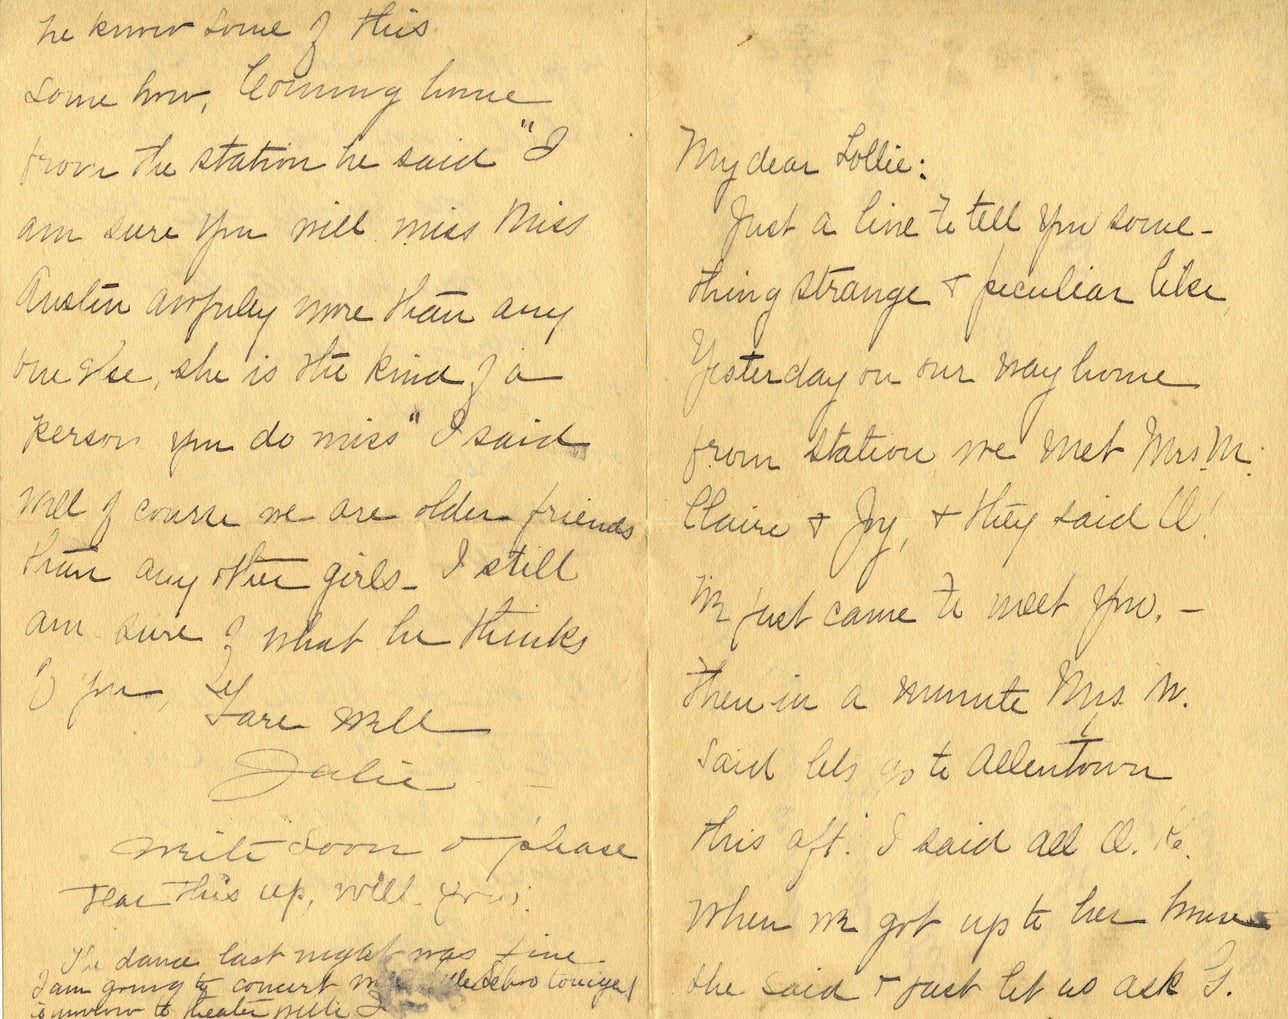 he knows some of this
some how, Coming home
from the station he said "I
am sure you will miss Miss
Austin awfully more than any
one else, she is the kind of a
person you do miss" I said
well of course we are older friends
than any other girls - I still
am sure of what he thinks
of you,
Fare well
Julie
write soon & please
tear this up, will you.
The dance last night was fine
I am going to concert
to theater with
My dear Lollie:
Just a line to tell you some-
thing strange & peculiar like
Yesterday on our way home
from station we met Mrs. M.
Claire & Joy, & they said O!
We just came to meet you. -
Then in a minute Mrs M.
said lets go to Allentown
this aft. I said all O. K.
when we got up to her house
she said & just let us ask G.